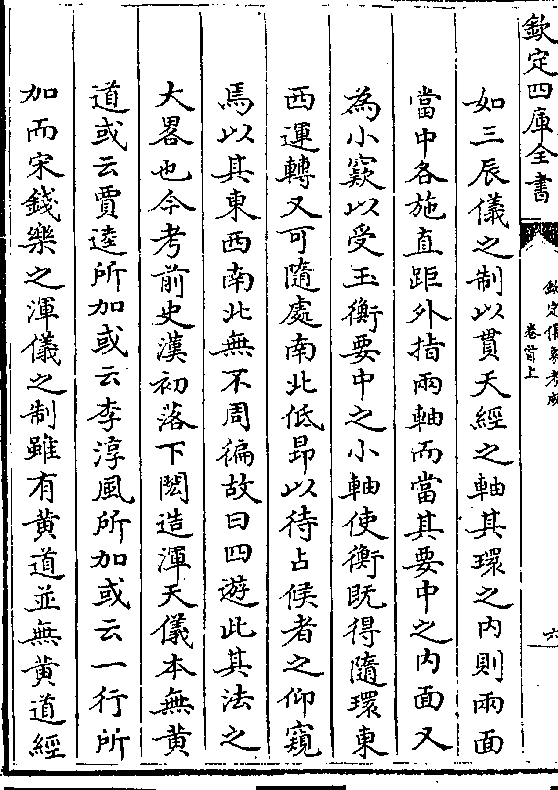 欽定四庫全書
欽定儀象考成
卷首上
六
如三辰儀之制以貫天經之軸其環之内則兩面
當中各施直距外指兩軸而當其要中之内面又
為小窽以受玉衡要中之小軸使衡既得隨環東
西運轉又可隨處南北低昂以待占候者之仰窺
焉以其東西南北無不周徧故曰四遊此其法之
大畧也今考前史漢初落下閎造渾天儀本無黄
道或云賈逵所加或云李淳風所加或云一行所
加而宋錢樂之渾儀之制雖有黄道並無黄道經